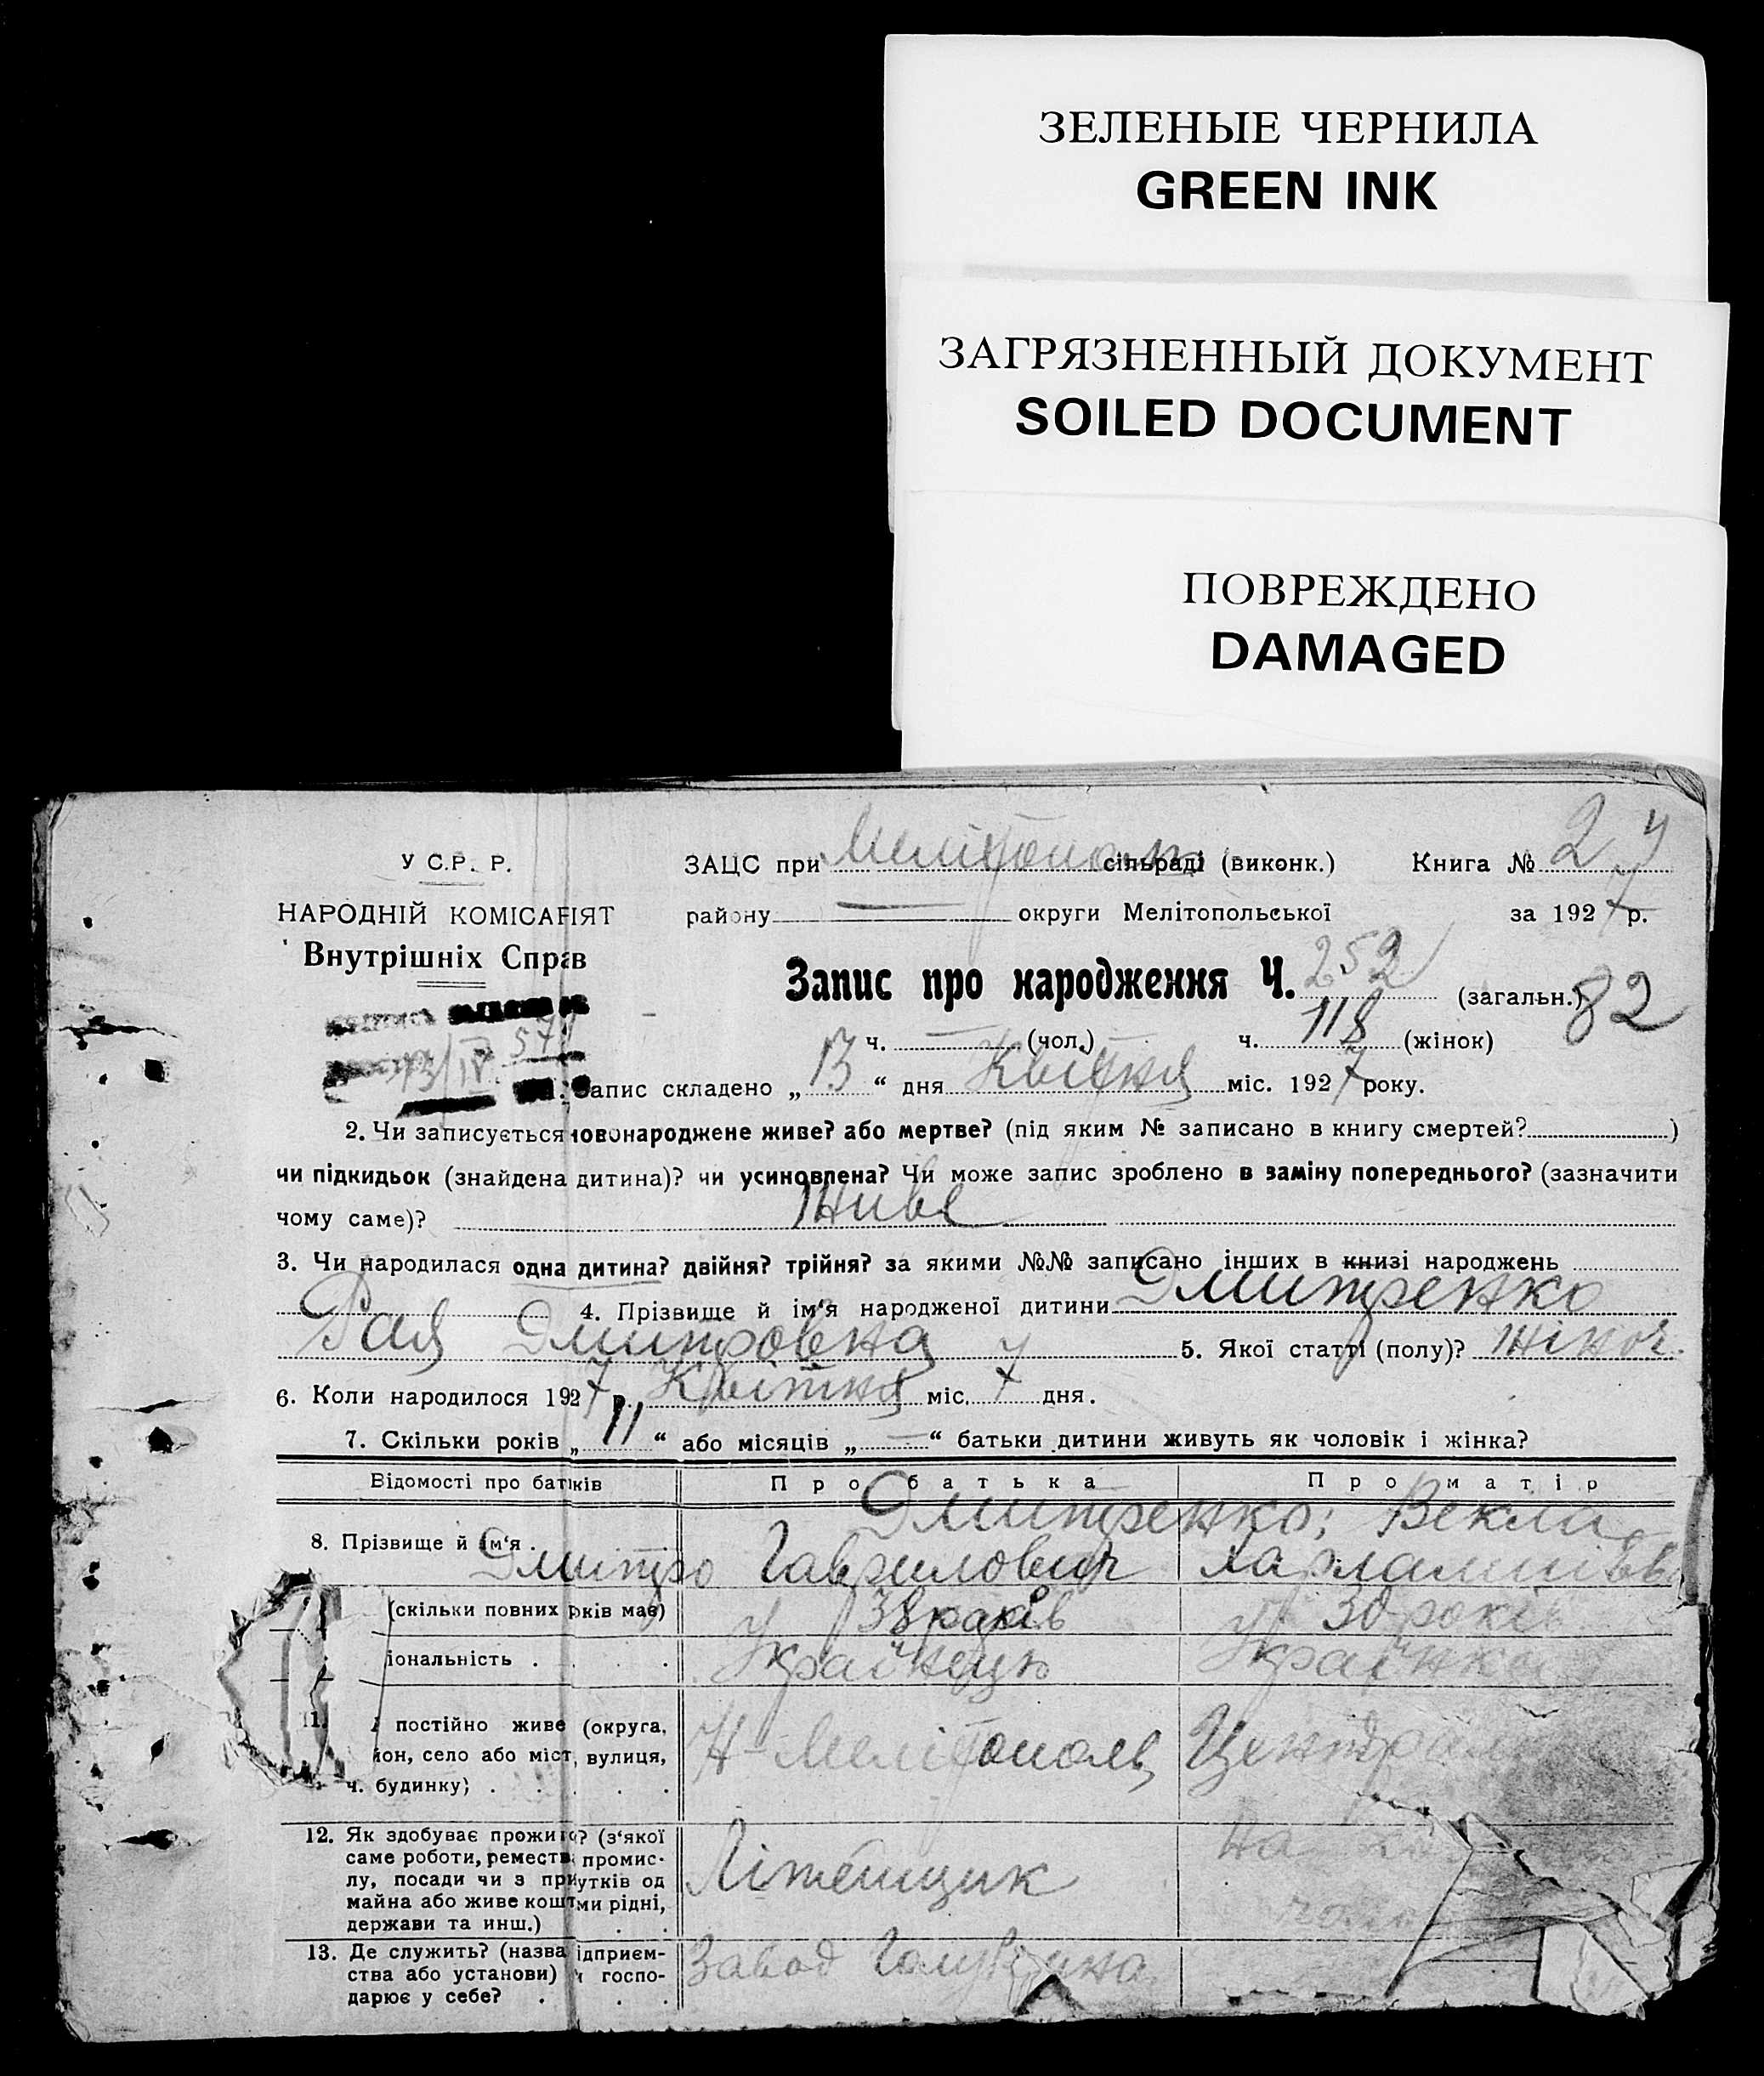 ЗЕЛЕНЫЕ ЧЕРНИЛА
GREEN INK
ЗАГРЯЗНЕННЫЙ ДОКУМЕНТ
SOILED DOCUMENT
ПОВРЕЖДЕНО
DAMAGED
У С.Р. Р. ЗАЦС при Мелітополь сільраді (виконк.) Книга № 2
НАРОДНІЙ КОМІСАРІЯТ району — округи Мелітопольської за 1927 р.
Внутрішніх Справ
Запис про народження Ч. 252 (загальн.) 82
ч. — (чол.) ч. 118 (жінок)
13/IV 571
Запис складено „ 13 “ дня Квітня міс. 1927 року.
2. Чи записується новонароджене живе? або мертве? (під яким № записано в книгу смертей? )
чи підкидьок (знайдена дитина)? чи усиновлена? Чи може запис зроблено в заміну попереднього? (зазначити
чому саме)? Живе
3. Чи народилася одна дитина? двійня? трійня? за якими №№ записано інших в книзі народжень
4. Прізвище й ім‘я народженої дитини Дмитренко
Рая Дмитровна 5. Якої статті (полу)? жіноч.
6. Коли народилося 1927 р. Квітня міс. 7 дня.
7. Скільки років „ 11 “ або місяців „ — “ батьки дитини живуть як чоловік і жінка?
Відомості про батьків Про батька Про матір
Дмитренко; Векла
8. Прізвище й ім‘я . Дмитро Гаврилович Харлампіївна
(скільки повних років має) 38 років 30 років
іональність . . . . Українець Українка
11. постійно живе (округа,
йон, село або місто, вулиця, Н-Мелітополь,
ч. будинку) . . . . .
12. Як здобуває прожиток? (з‘якої
саме роботи, ремества, промис-
лу, посади чи з прибутків од Літейщик
майна або живе коштами рідні,
держави та инш.) . .
13. Де служить? (назва підприєм-
ства або установи) чи госпо- Завод
дарює у себе? . . .